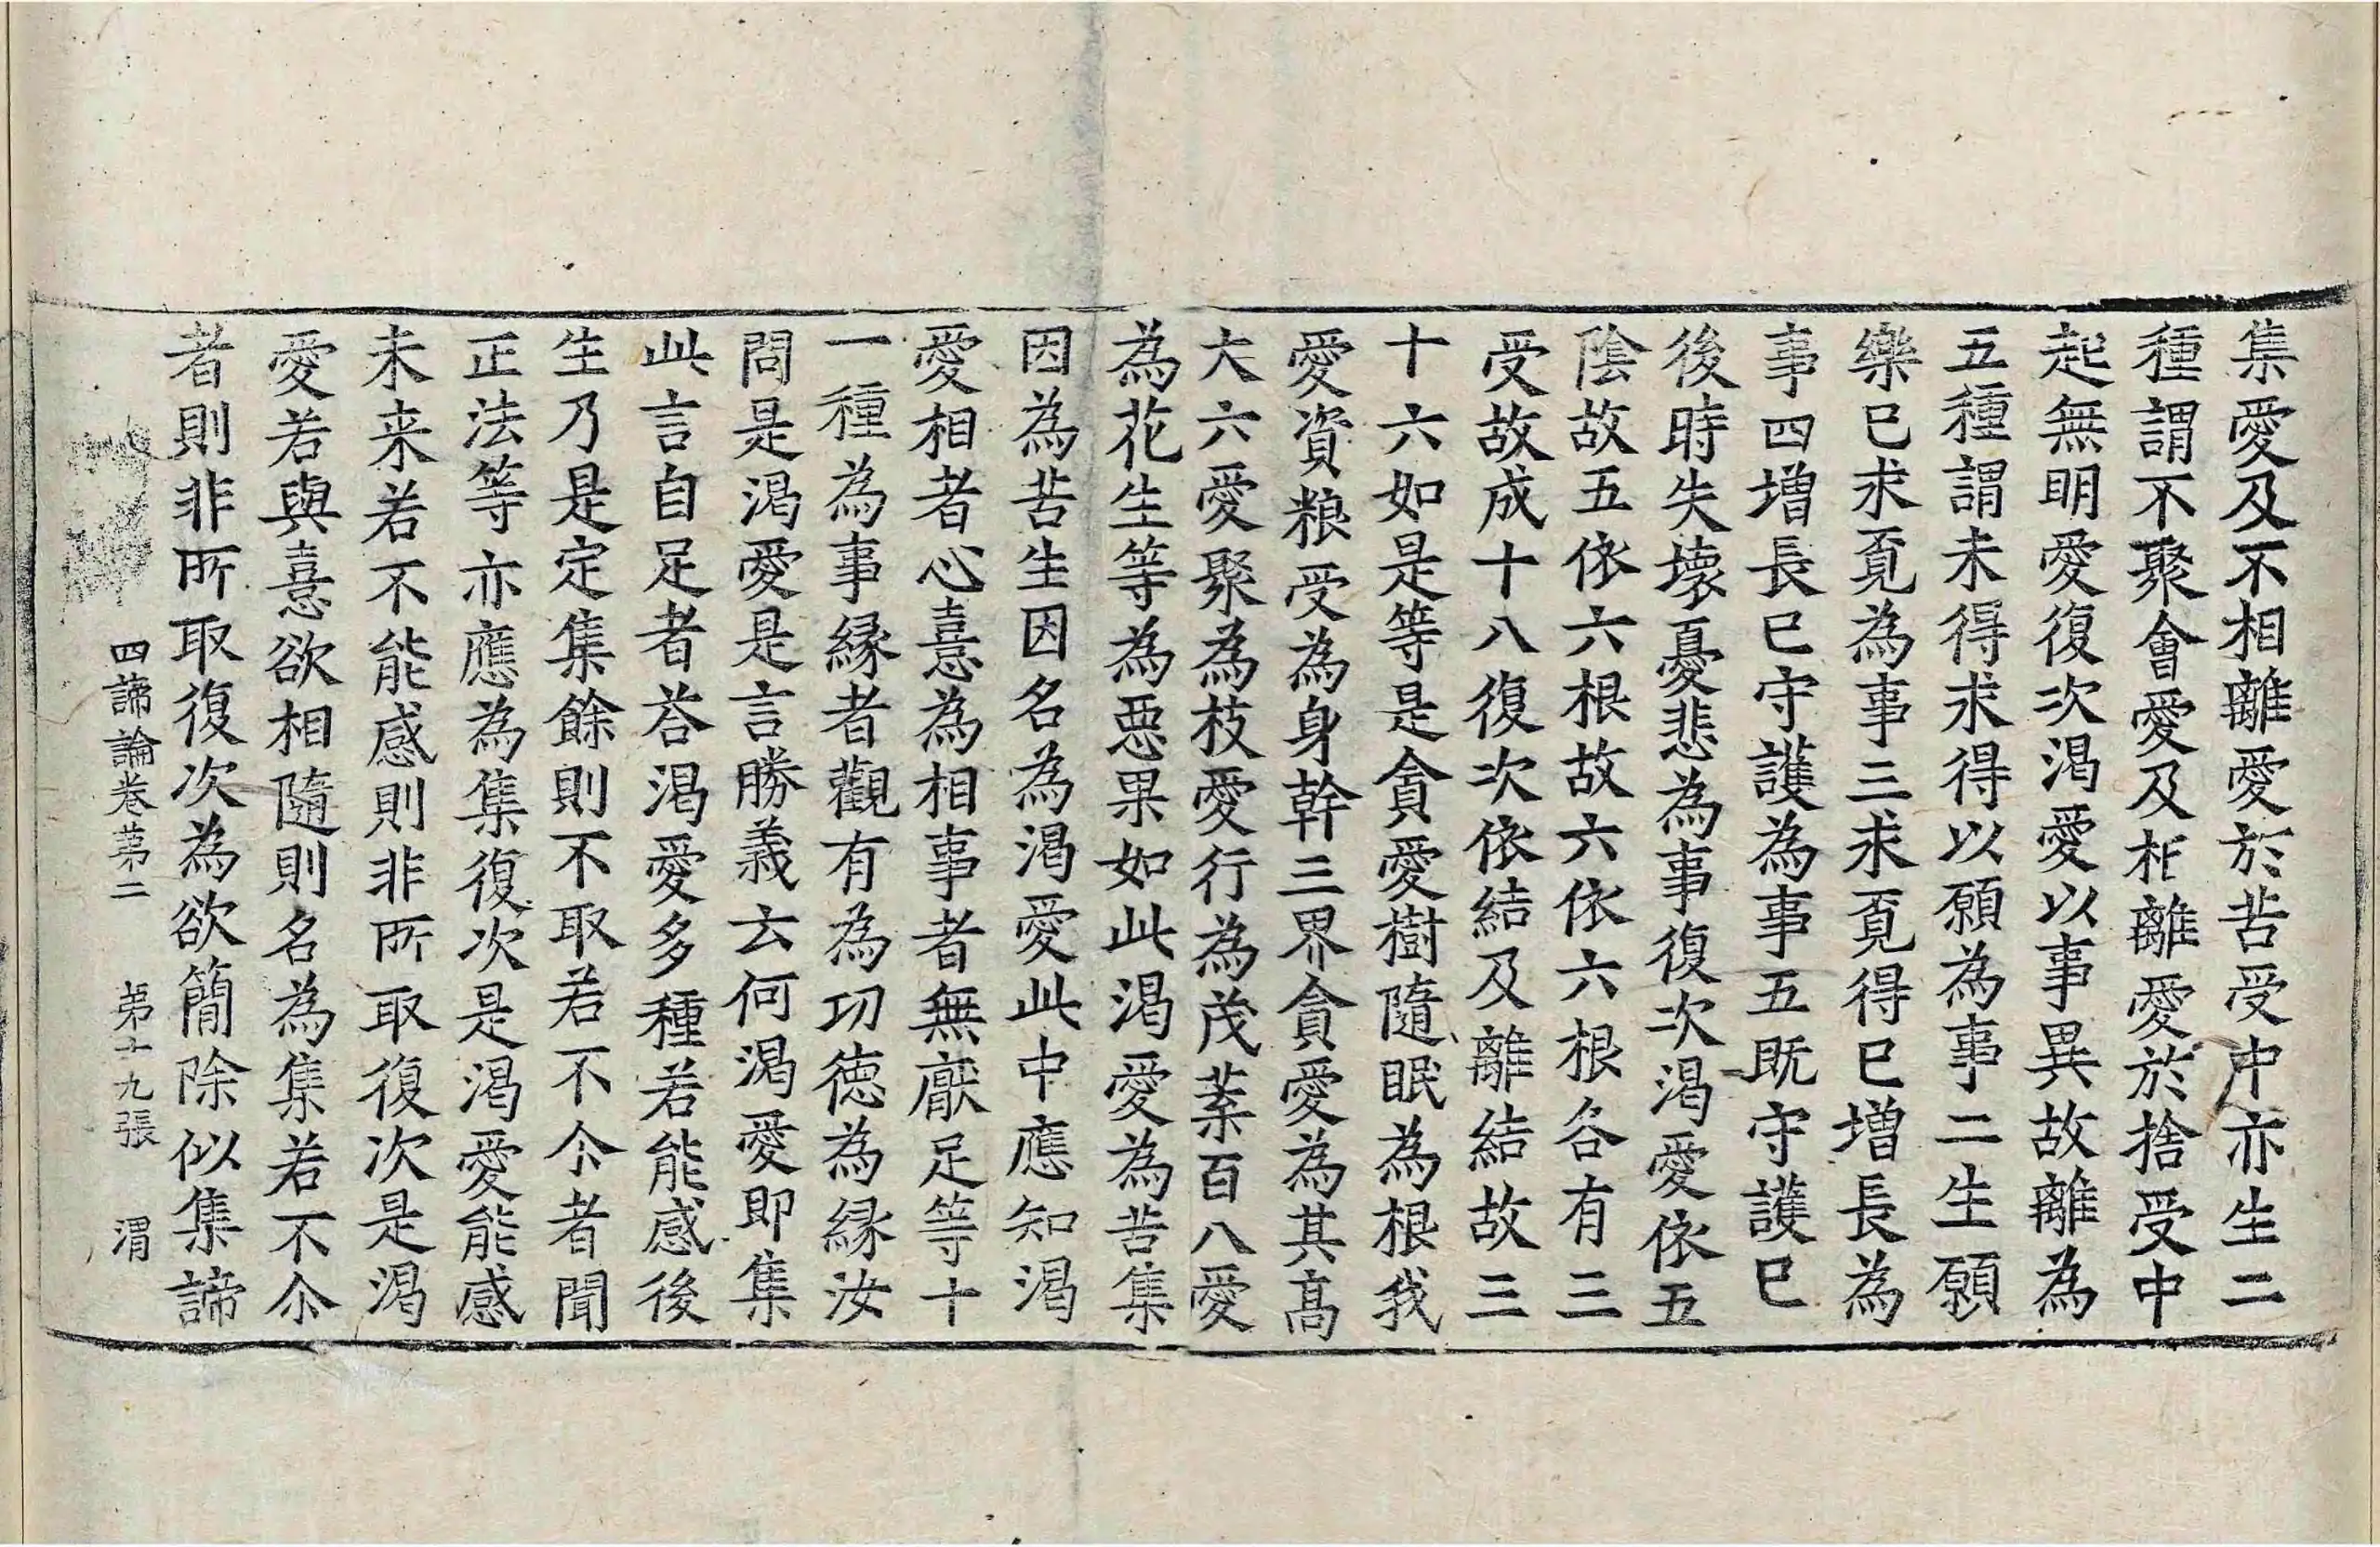 集愛及不相離愛於苦受中亦生二
種謂不聚會愛及相離愛於捨受中
起無明愛復次渴愛以事異故離為
五種謂未得求得以願為事二生願
樂已求覓為事三求覓得已增長為
事四增長已守護為事五既守護已
後時失壞憂悲為事復次渴愛依五
陰故五依六根故六依六根各有三
受故成十八復次依結及離結故三
十六如是等是貪愛樹隨眠為根我
愛資粮受為身幹三界貪愛為其髙
大六愛聚為枝愛行為茂葉百八愛
為花生等為惡果如此渴愛為苦集
因為苦生因名為渴愛此中應知渴
愛相者心憙為相事者無厭足等十
一種為事縁者觀有為功德為縁汝
問是渴愛是言勝義云何渴愛即集
此言自足者荅渴愛多種若能感後
生乃是定集餘則不取若不尒者聞
正法等亦應為集復次是渴愛能感
未来若不能感則非所取復次是渴
愛若與憙欲相隨則名為集若不尒
者則非所取復次為欲簡除似集諦
四諦論卷苐二 苐十九張 渭